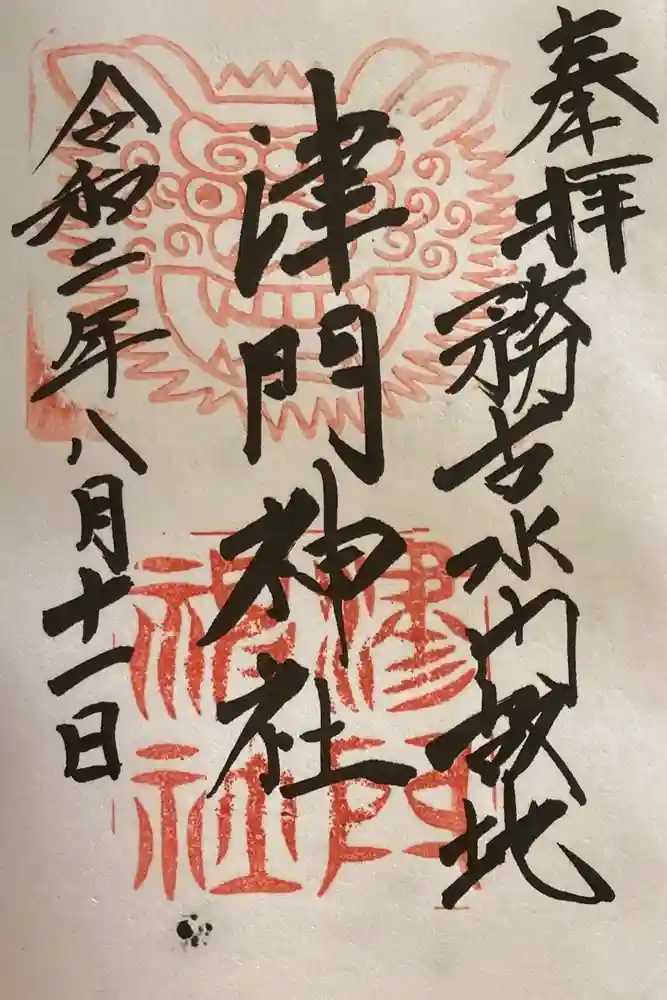 奉拝
務古水門故地
津門神社
令和二年八月十一日
津門
神社